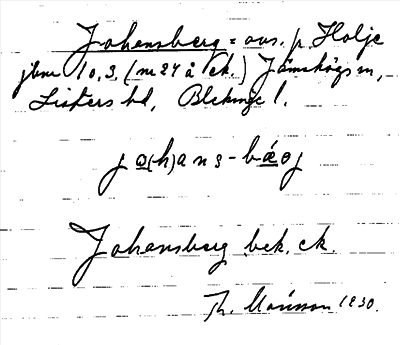 Johansberg = avs. p. Holje
jbnr 10, 3. (nr 24 å ek.) Jämshögs sn,
Listers hd, Blekinge l.
j o(h)a n s - b æ o j
Johansberg bek. ek.
Th. Månsson 1930.